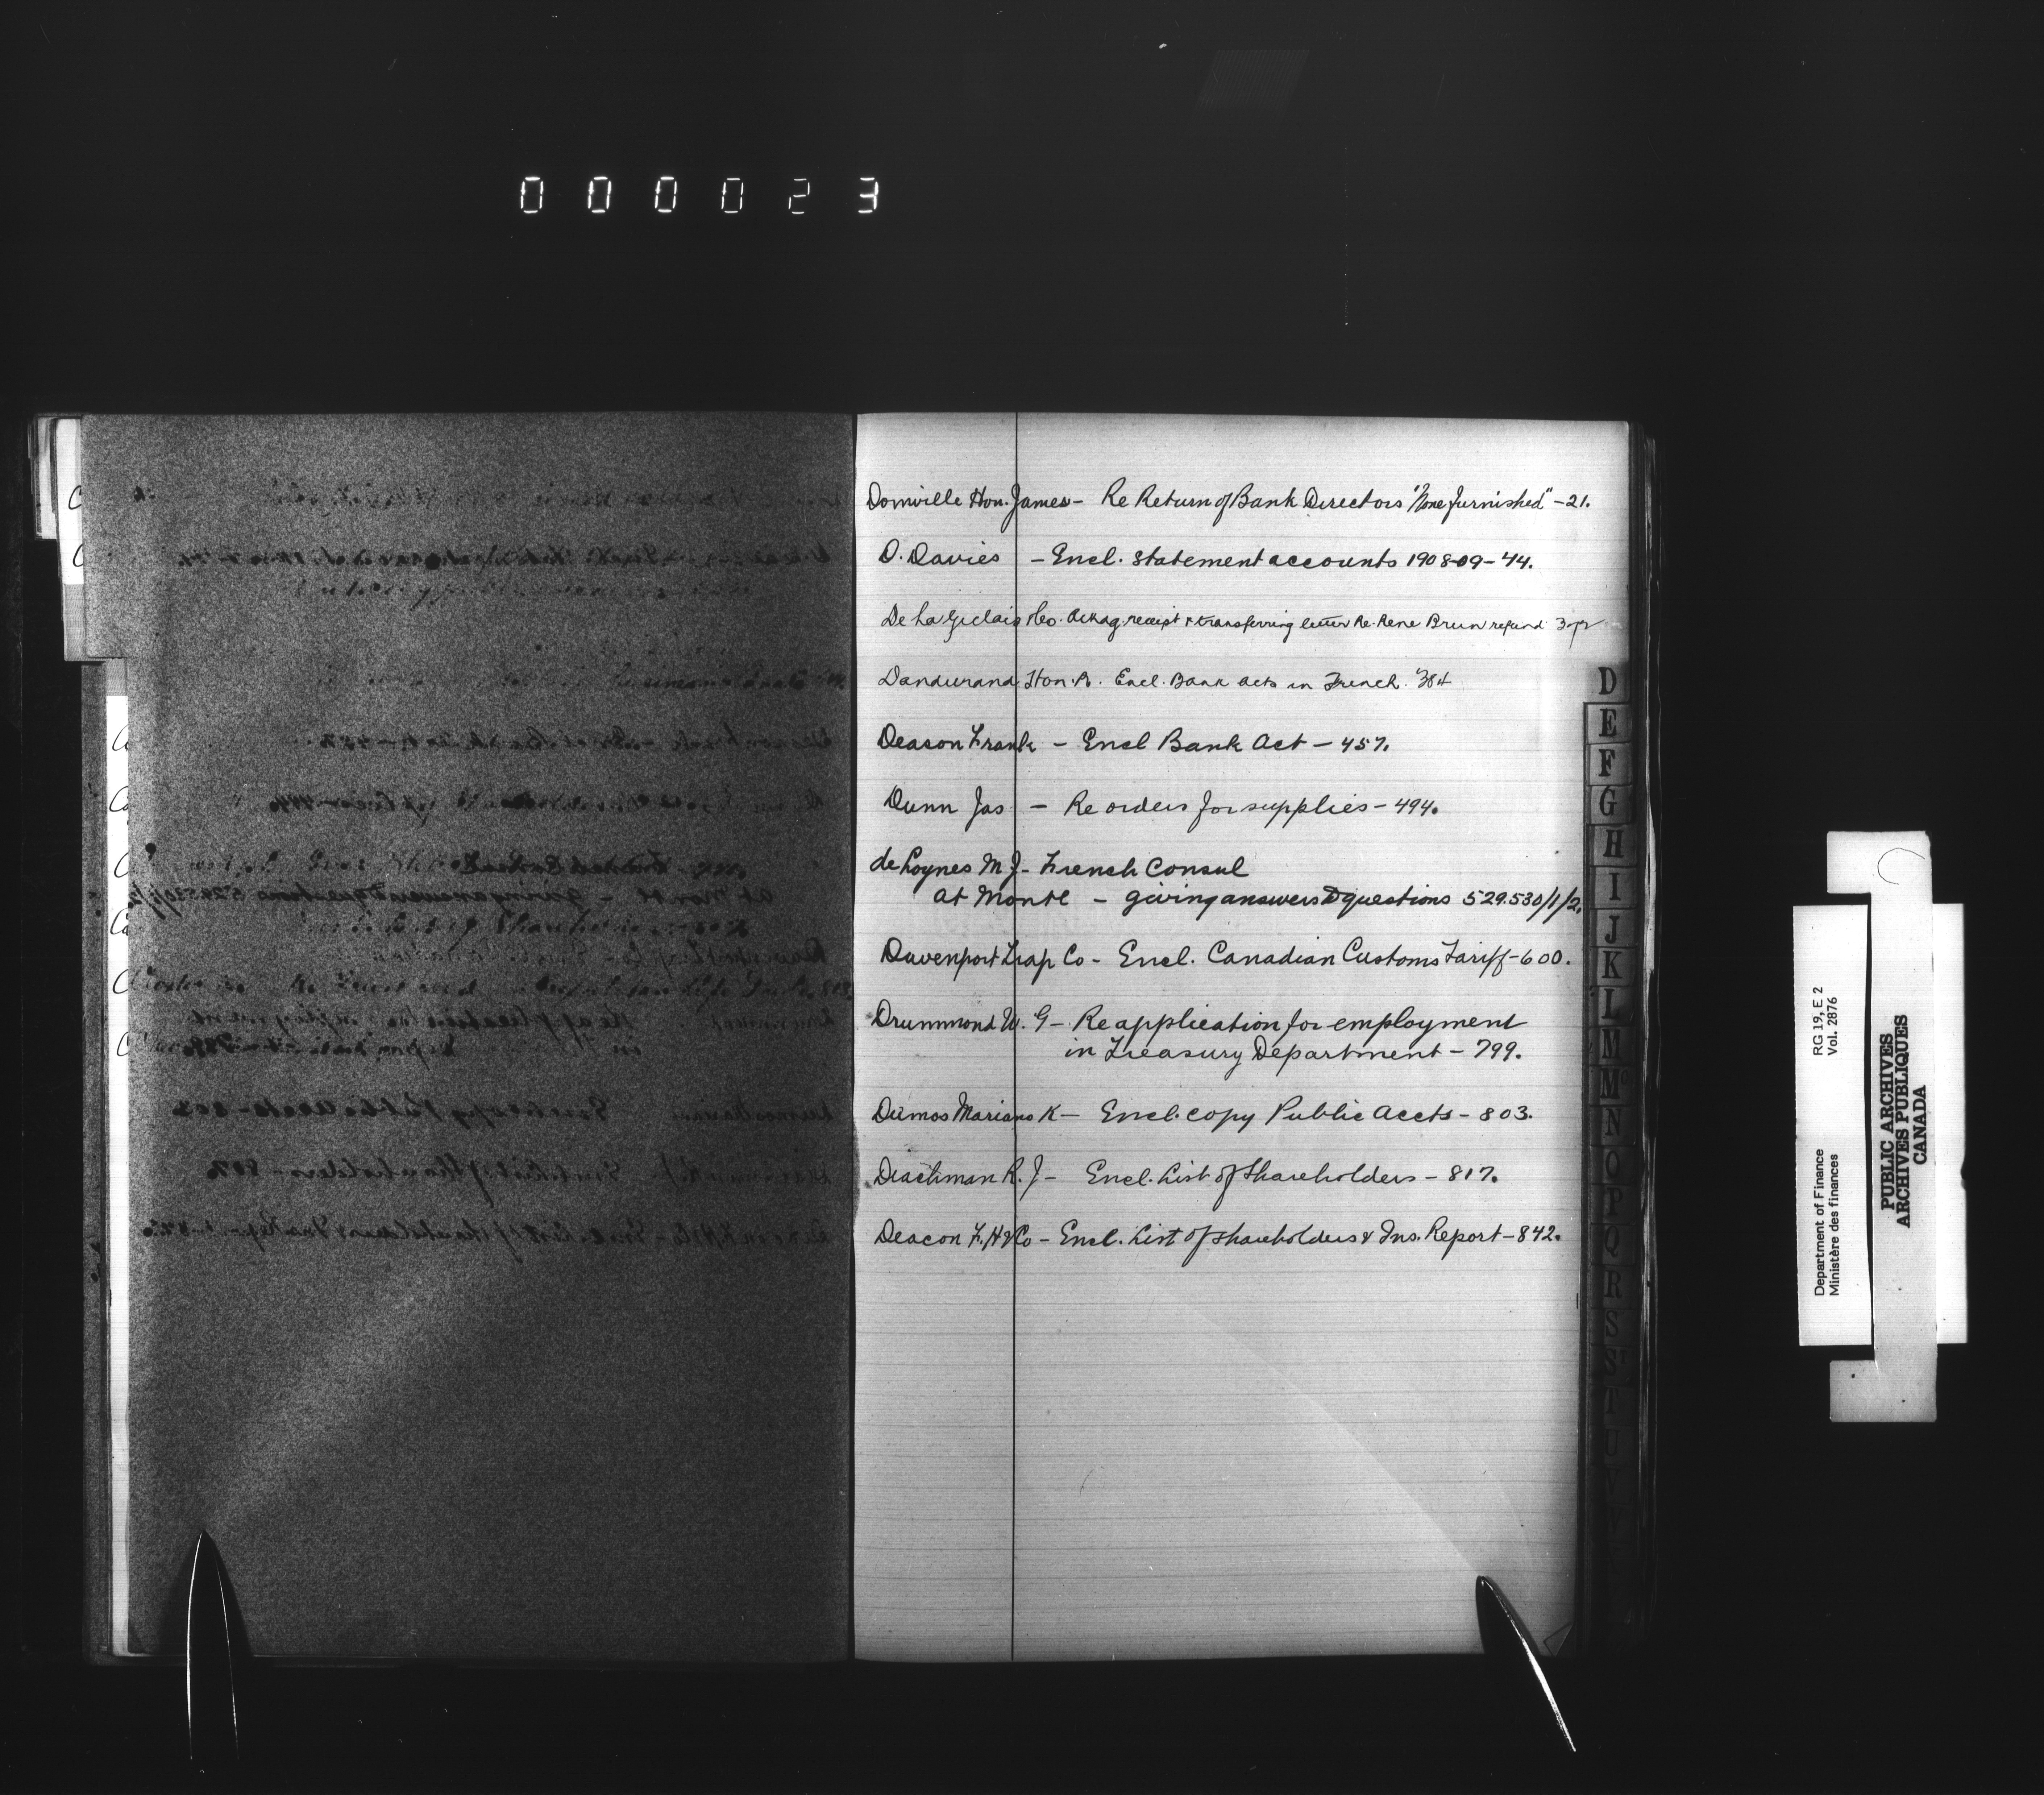 000023
Domville Hon. James - Re Return of Bank Directors "None furnished" - 21.
D. Davies - Encl. statement accounts 1908-09 - 44.
De La Geo. receipt & transferring letter Re. Rene Brun refund
Dandurand Hon. R. Encl. Bank acts in French. 384
Deason Frank - Encl Bank Act - 457.
Dunn Jas - Re orders for supplies - 494.
de Loynes M J - French Consul
at Montl - giving answers to questions 529.530/1/2.
Davenport Trap Co - Encl. Canadian Customs Tariff - 600.
Drummond W. G - Re application for employment
in Treasury Department - 799.
Dumos Mariano K - Encl. copy Public Accts - 803.
Deachman R. J - Encl. List of Shareholders - 817.
Deacon F. H & Co - Encl. List of Shareholders & Ins. Report - 842.
D
E
F
G
H
I
J
K
L
M
Mc
N
O
P
Q
R
S
T
U
V
Department of Finance RG 19, E 2
Ministère des finances Vol. 2876
PUBLIC ARCHIVES
ARCHIVES PUBLIQUES
CANADA